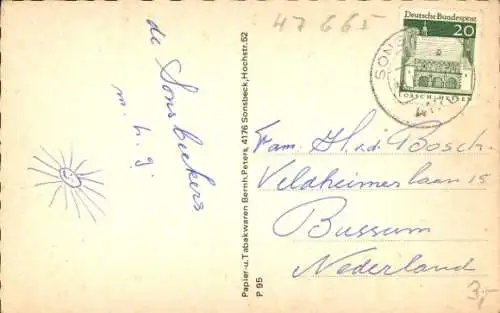 47665
de Sonsbeckers
m. h. g.
Papier-u. Tabakwaren Bernh. Peters, 4176 Sonsbeck, Hochstr. 52
P 95
Deutsche Bundespost
20
LORSCH/HESSEN
SONS
Fam. H. v.d. Bosch.
Veldheimerlaan 15
Bussum
Nederland
3,-